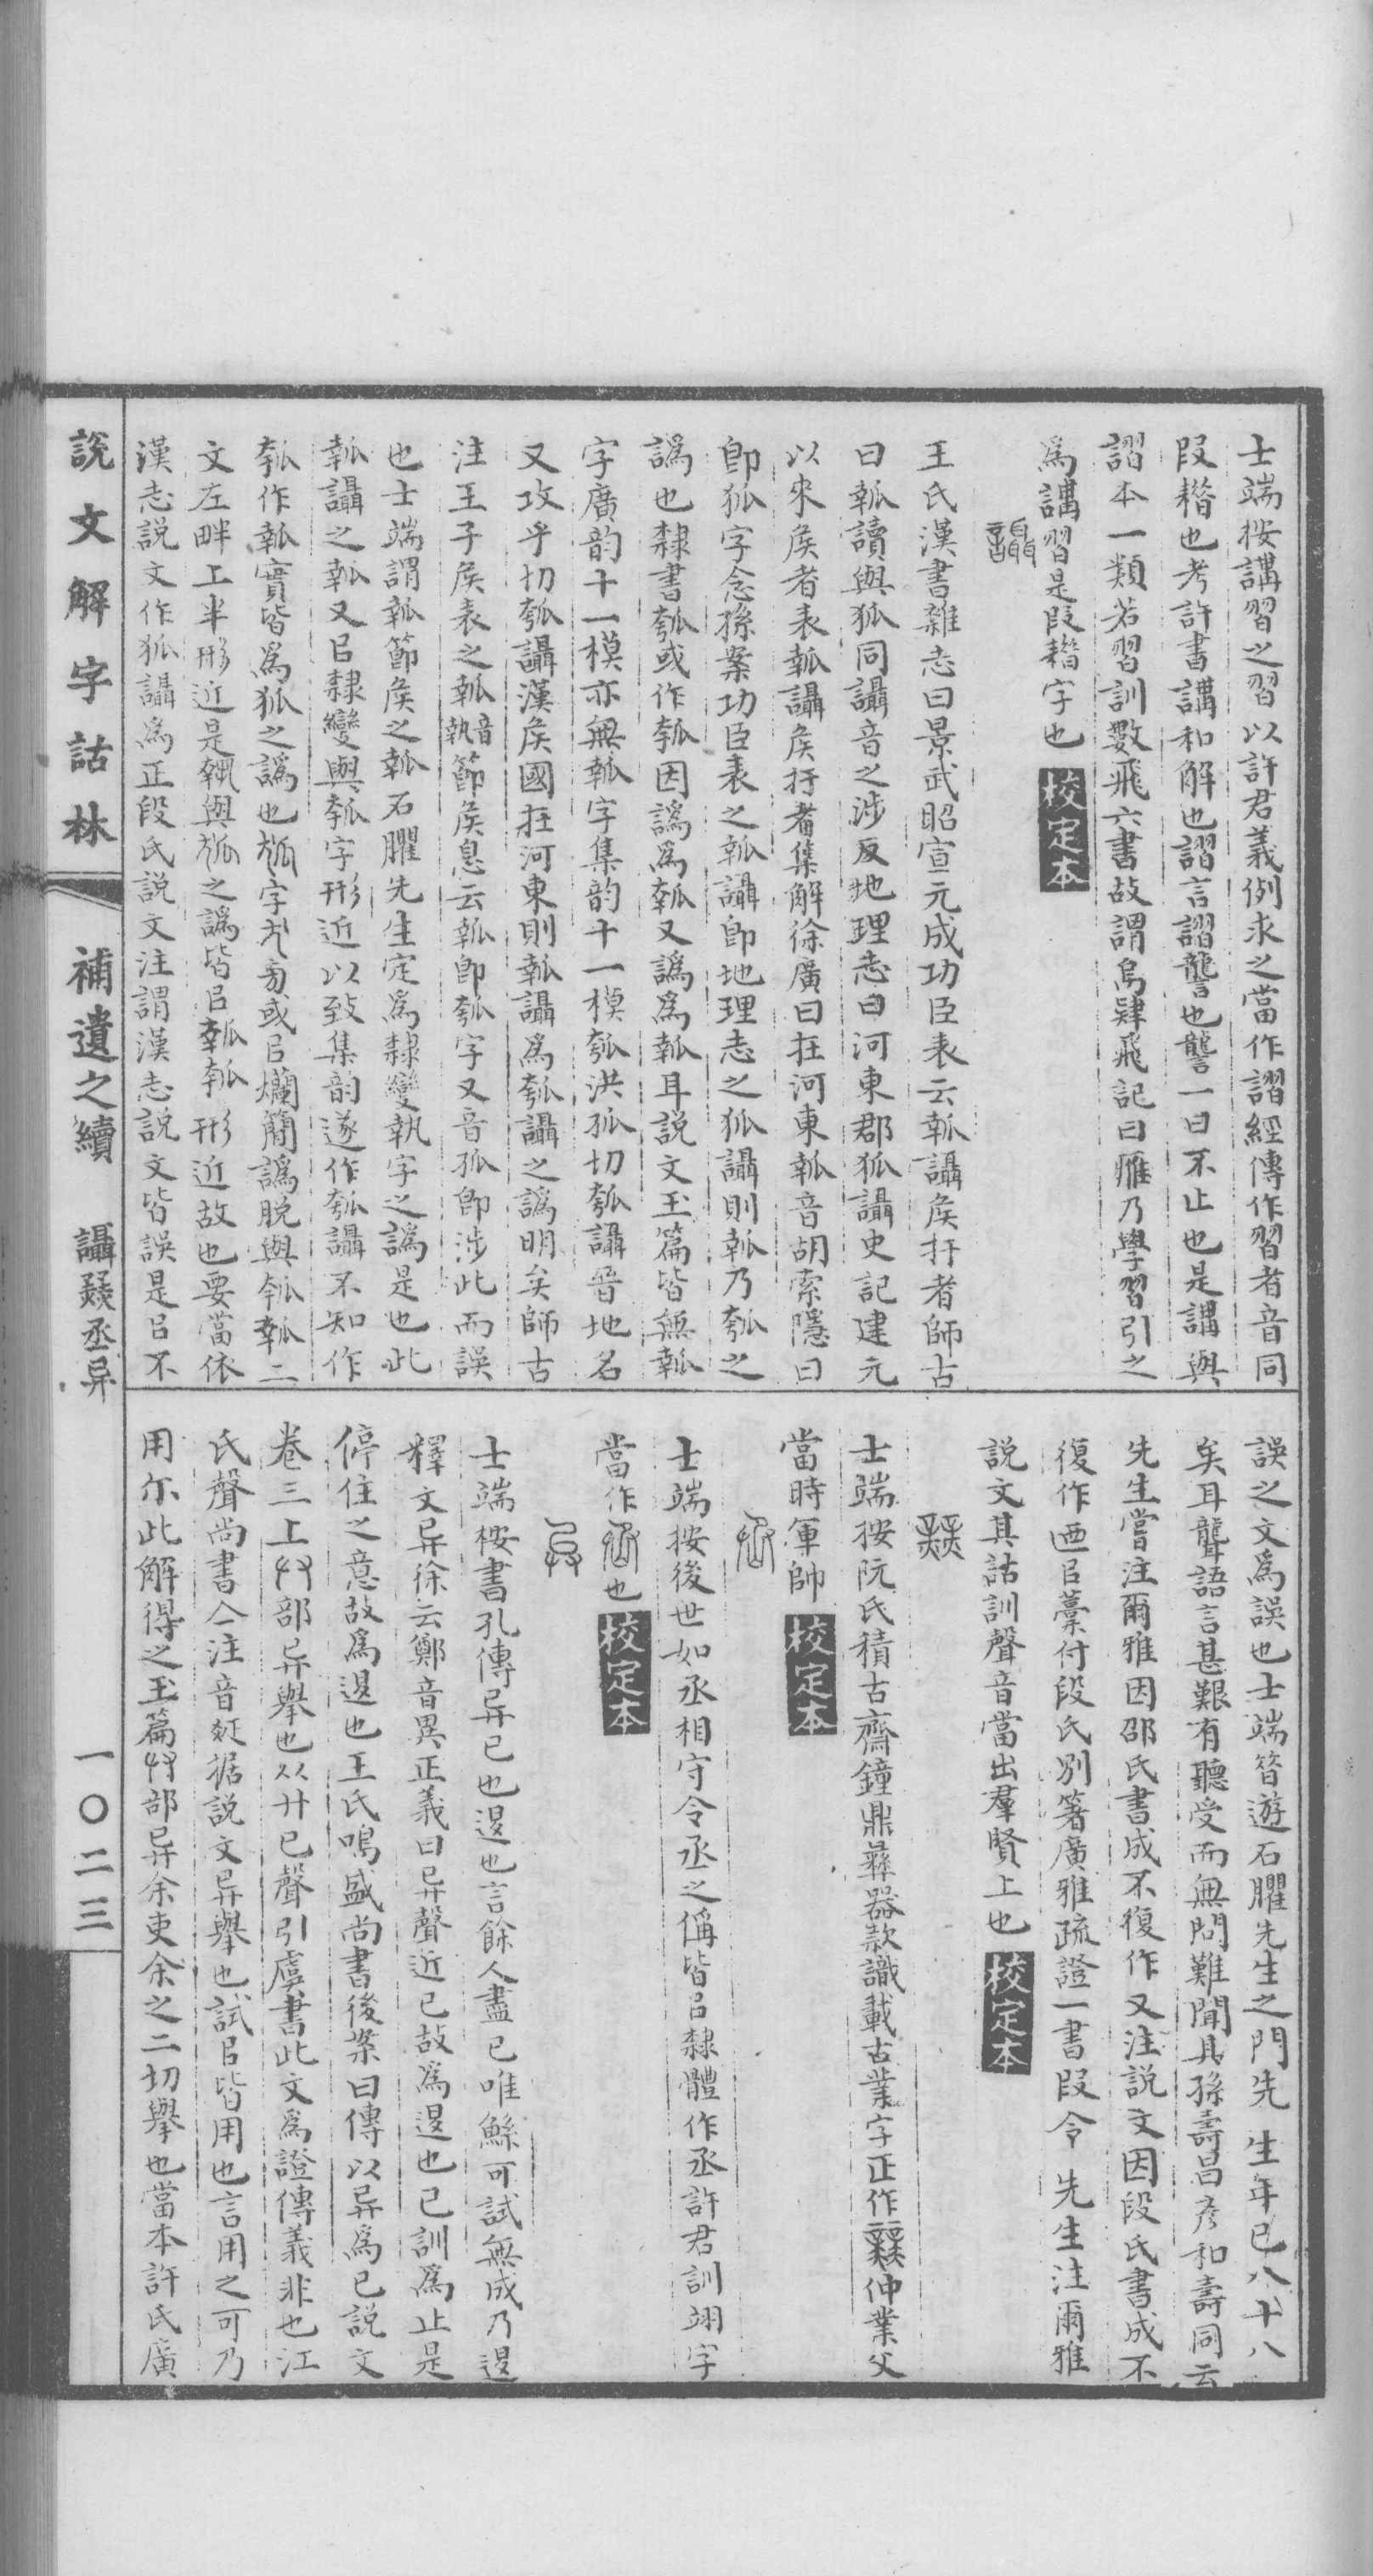 士端按講習之習以許君義例求之當作謵經傳作習者音同
叚耤也考許書講和解也謵言謵讋也讋一曰不止也是講與
謵本一類若習訓數飛六書故謂鳥肄飛記曰鷹乃學習引之
爲講習是叚耤字也校定本
讘
王氏漢書雜志曰景武昭宣元成功臣表云瓡讘矦扞者師古
曰瓡讀與狐同讘音之涉反地理志曰河東郡狐讘史記建元
以來矦者表瓡讘矦扞者集解徐廣曰在河東瓡音胡索隱曰
卽狐字念孫案功臣表之瓡讘卽地理志之狐讘則瓡乃瓠之
譌也隸書瓠或作㼋因譌爲瓡又譌爲瓡耳說文玉篇皆無瓡
字廣韵十一模亦無瓡字集韵十一模瓠洪孤切瓠讘晉地名
又攻乎切瓠讘漢矦國在河東則瓡讘爲瓠讘之譌明矣師古
注王子矦表之瓡音執節矦息云瓡卽瓠字又音孤卽涉此而誤
也士端謂瓡節矦之瓡石臞先生定爲隸變執字之譌是也此
瓡讘之瓡又㠯隸變與瓠字形近以致集韵遂作瓠讘不知作
瓠作瓡實皆爲狐之譌也狐字犬旁或㠯爛簡譌脫與瓠瓡二
文左畔上半形近是瓡與狐之譌皆㠯瓡瓠形近故也要當依
漢志說文作狐讘爲正段氏說文注謂漢志說文皆誤是㠯不
誤之文爲誤也士端昝遊石臞先生之門先生年已八十八
矣耳聾語言甚艱有聽受而無問難聞其孫壽昌彥和壽同云
先生嘗注爾雅因邵氏書成不復作又注說文因段氏書成不
復作迺㠯藁付段氏別箸廣雅疏證一書叚令先生注爾雅
說文其詁訓聲音當出羣賢上也校定本
士端按阮氏積古齋鐘鼎彝器款識載古業字正作仲業父
當時軍帥校定本
士端按後世如丞相守令丞之偁皆㠯隸體作丞許君訓翊字
當作也校定本
士端桉書孔傳异已也退也言餘人盡已唯鯀可試無成乃退
釋文异徐云鄭音異正義曰异聲近已故爲退也已訓爲止是
停住之意故爲退也王氏鳴盛尚書後案曰傳以异爲已說文
卷三上𠬞部异舉也从廾已聲引虞書此文爲證傳義非也江
氏聲尚書亼注音疑据說文异舉也試㠯皆用也言用之可乃
用尒此解得之玉篇𠬞部异余吏余之二切舉也當本許氏廣
說文解字詁林 補遺之續 讘 丞异 一〇二三